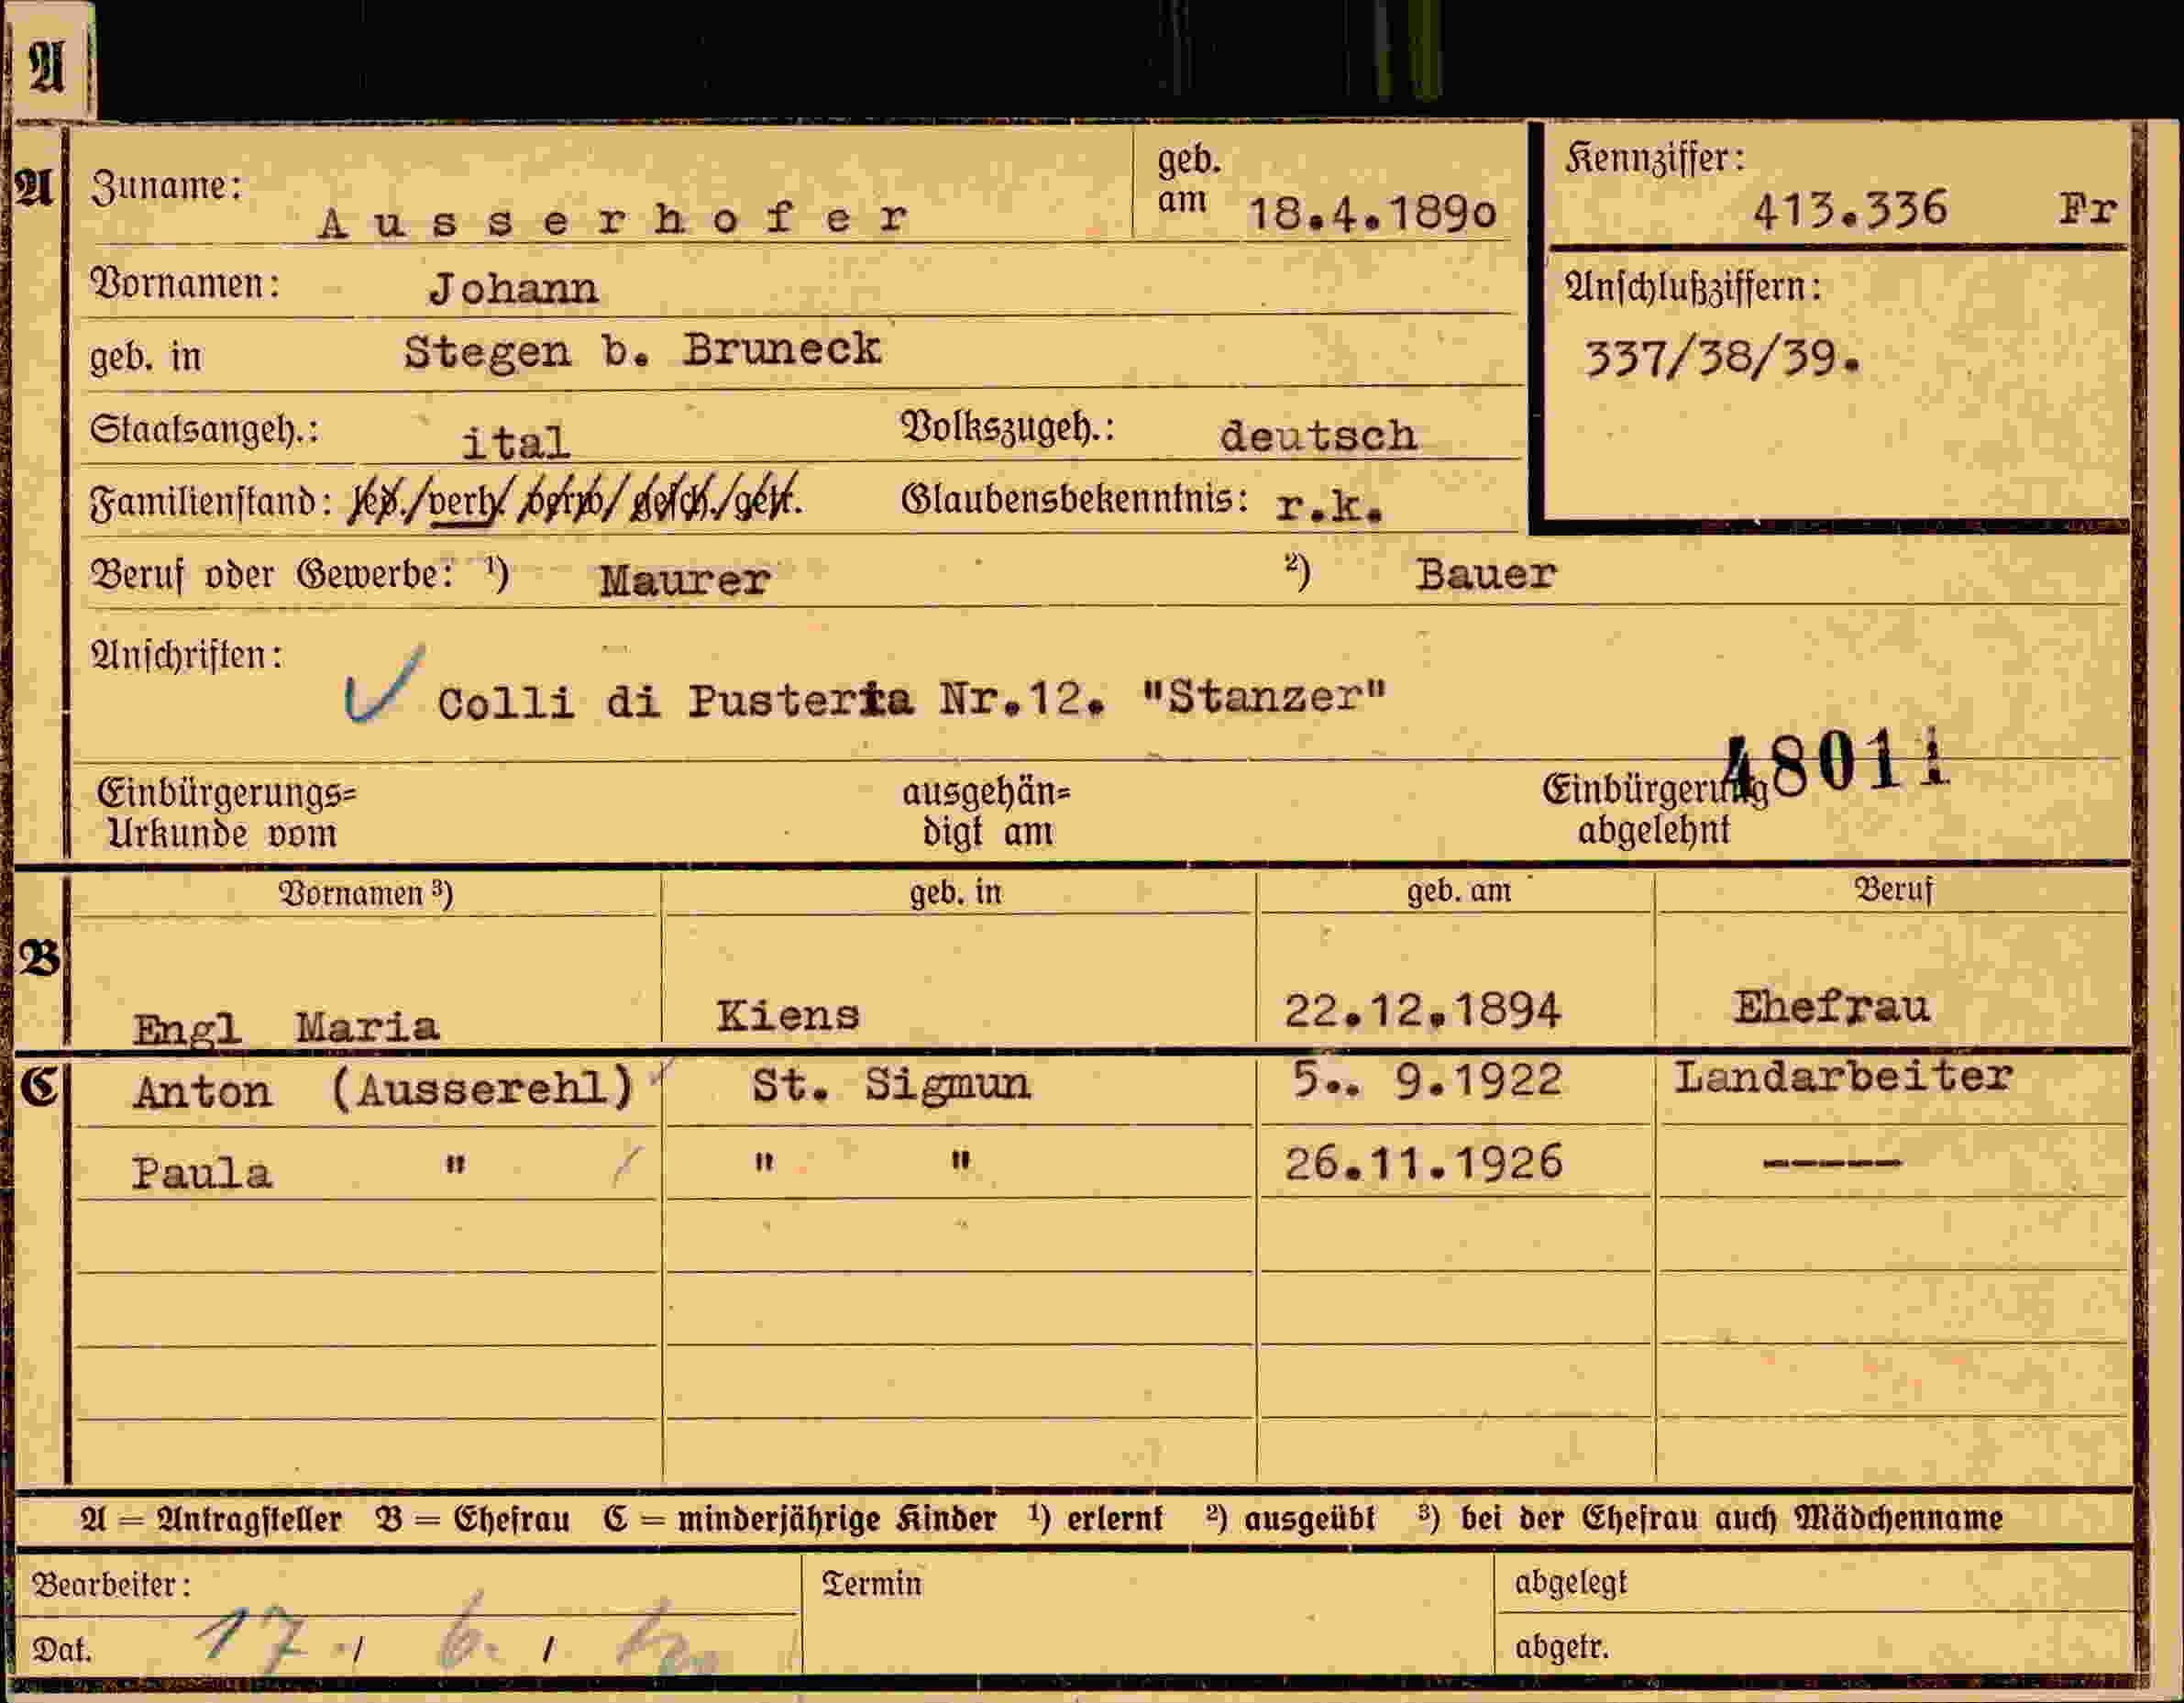 A
A
Zuname: Ausserhofer
geb. am 18.4.1890
Kennziffer: 413.336 Fr
Vornamen: Johann
Anschlußziffern:
337/38/39.
geb. in Stegen b. Bruneck
Staatsangeh.: ital Volkszugeh.: deutsch
Familienstand: led./verh./verw/gesch./getr. Glaubensbekenntnis: r.k.
Beruf oder Gewerbe: 1) Maurer 2) Bauer
Anschriften:
Colli di Pusteria Nr.12. "Stanzer"
48011
Einbürgerungs=
Urkunde vom
ausgehän=
digt am
Einbürgerung
abgelehnt
Vornamen 3) geb. in geb. am Beruf
B
Engl Maria Kiens 22.12.1894 Ehefrau
C
Anton (Ausserehl) St. Sigmun 5.. 9.1922 Landarbeiter
Paula " " " 26.11.1926 -----
A = Antragsteller B = Ehefrau C = minderjährige Kinder 1) erlernt 2) ausgeübt 3) bei der Ehefrau auch Mädchenname
Bearbeiter: Termin abgelegt
Dat. 17./ 6. / abgetr.